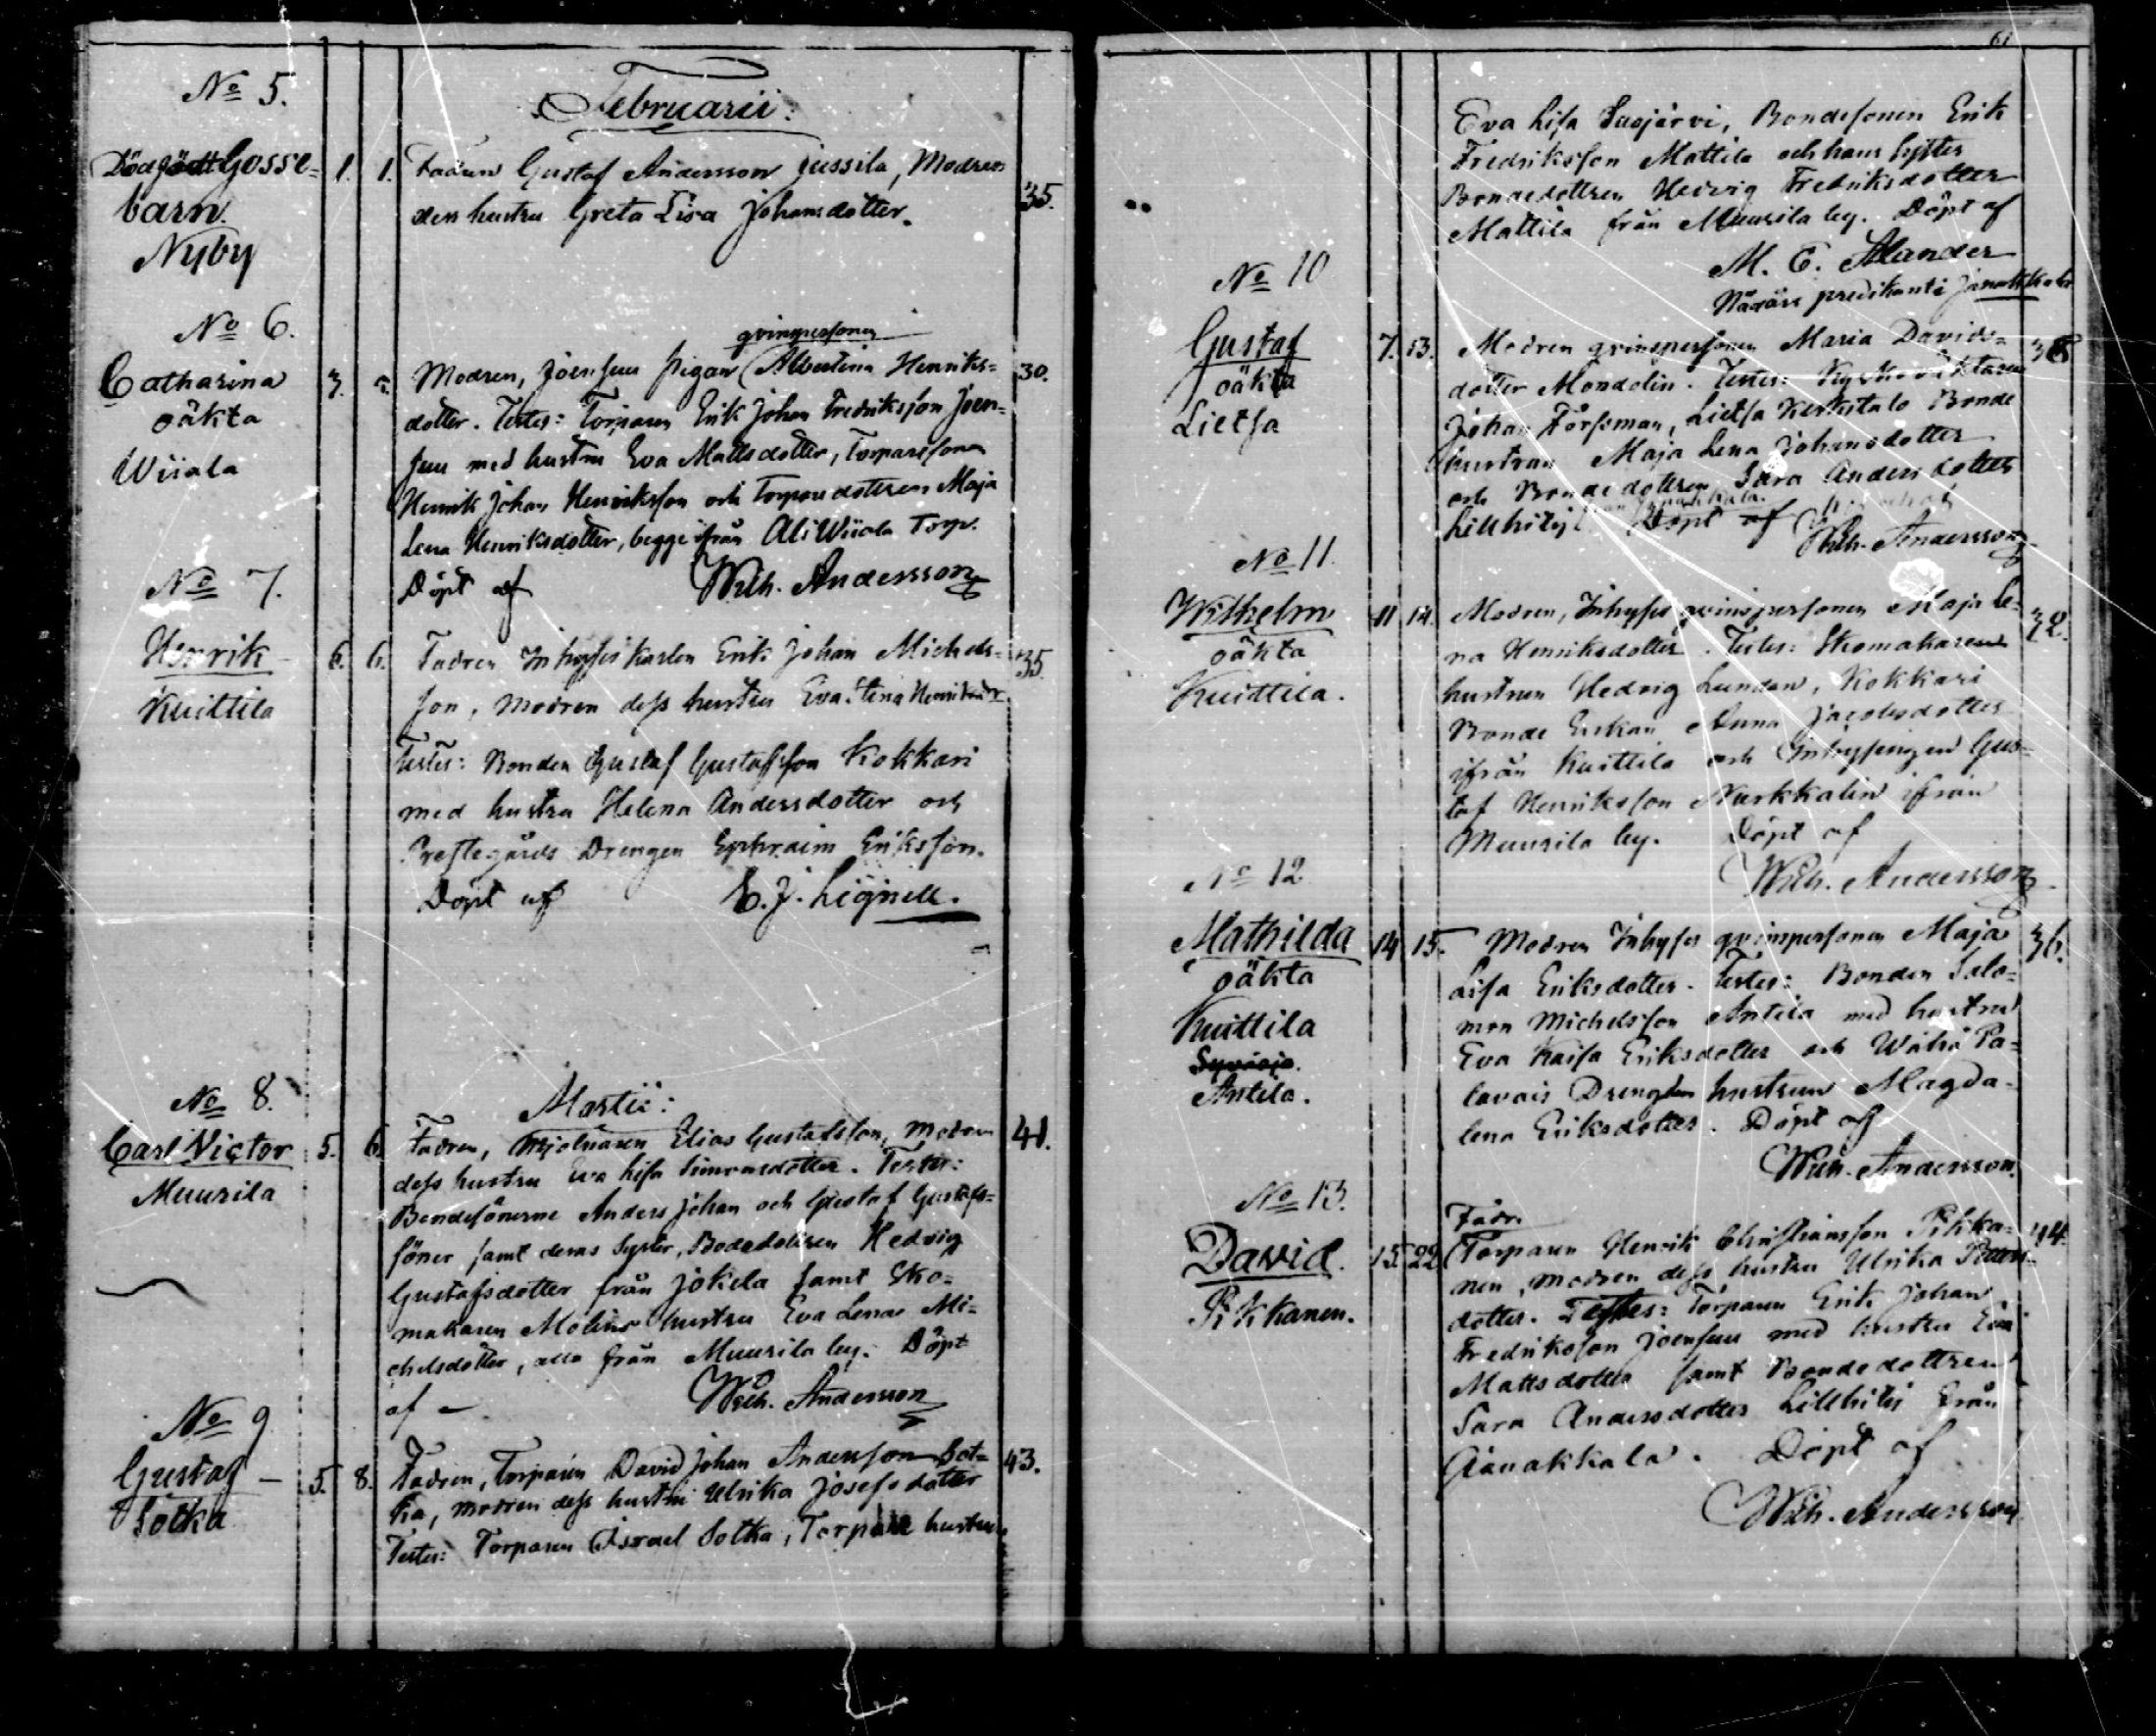 No 5.
Februarii:
Dödfödt Gosse- 1. 1. Fadren Gustaf Andersson Jussila, Modren 35.
barn. dess hustru Greta Lisa Johansdotter.
Nyby
No 6.
qvinspersonen
Catharina 3. Modren, Joensuu Pigan Albertina Henriks= 30.
oäkta dotter. Testes: Torparen Erik Johan Fredriksson Joen=
Wiiala suu med hustru Eva Mattsdotter, Torparesonen
Henrik Johan Henriksson och Torparedottren Maja
Lena Henriksdotter, begge ifrån Ali Wiiala Torp.
Döpt af Wilh. Andersson
No 7.
Henrik 6. 6. Fadren Inhyses karlen Erik Johan Michels- 35.
Kuittila son, modren dess hustru Eva Stina Henriksdr
Testes: Bonden Gustaf Gustafsson Kokkari
med hustru Helena Andersdotter och
Prestegårds Drengen Ephraim Eriksson.
Döpt af E. J. Lignell.
Martii:
No 8.
Carl Victor 5. 6. Fadren, Mjölnaren Elias Gustafsson, modren 41.
Muurila dess hustru Eva Lisa Simonsdotter. Testes:
Bondesönerne Anders Johan och Gustaf Gustafs=
söner samt deras Syster, Bodedottren Hedvig
Gustafsdotter från Jokela samt Sko=
makaren Molins hustru Eva Lena Mi=
chelsdotter, alla från Muurila by. Döpt
af Wilh. Andersson
No 9
Gustaf 5. 8. Fadren, Torparen David Johan Andersson Sot= 43.
Sotka ka, modren dess hustru Ulrika Josefsdotter
Testes: Torparen Israel Sotka, Torpare hustrun
61
Eva Lisa Suojärvi, Bondesonen Erik
Fredriksson Mattila och hans syster
Bondedottren Hedvig Fredriksdotter
Mattila från Muurila by. Döpt af
M. E. Alander
predikant i Janakkala
No 10
Gustaf 7. 13. Modren qvinspersonen Maria Davids=
oäkta dotter Mondolin. Testes: Kyrkovaktaren
Lietsa Johan Forssman, Lietsa Bonde
hustrun Maja Lena Johansdotter
och Bondedottren Sara Andersdotter
Lillhitis Janakkala. Döpt af Wilh. Andersson
No 11.
Wilhelm 11 14. Modren, Inhyses qvinspersonen Maja Le=
oäkta na Henriksdotter. Testes: Skomakaren
Kuittila. hustrun Hedvig Lundan, Kokkari
Bonde Enkan Anna Jacobsdotter
ifrån Kuittila och Inhysingen Gus=
taf Henriksson Narkkalin ifrån
Muurila by. Döpt af
Wilh. Andersson
No 12
Mathilda 14 15. Modren Inhyses qvinspersonen Maja 36.
oäkta Lisa Eriksdotter. Testes: Bonden Salo=
Kuittila mon Michelsson Antila med hustru
Eva Kaisa Eriksdotter och Wähä Pa=
Antila. lavais Drengens hustrun Magda=
lena Eriksdotter. Döpt af
Wilh. Andersson.
No 13.
Fadr.
David. 15. 22 Torparen Henrik Christiansson Pikka= 44.
Pikkanen. nen, modren dess hustru Ulrika
dotter. Testes: Torparen Erik Johan
Fredriksson Joensuu med hustru Eva
Mattsdotter samt Bondedottren
Sara Andersdotter Lillhitis från
Janakkala. Döpt af
Wilh. Andersson